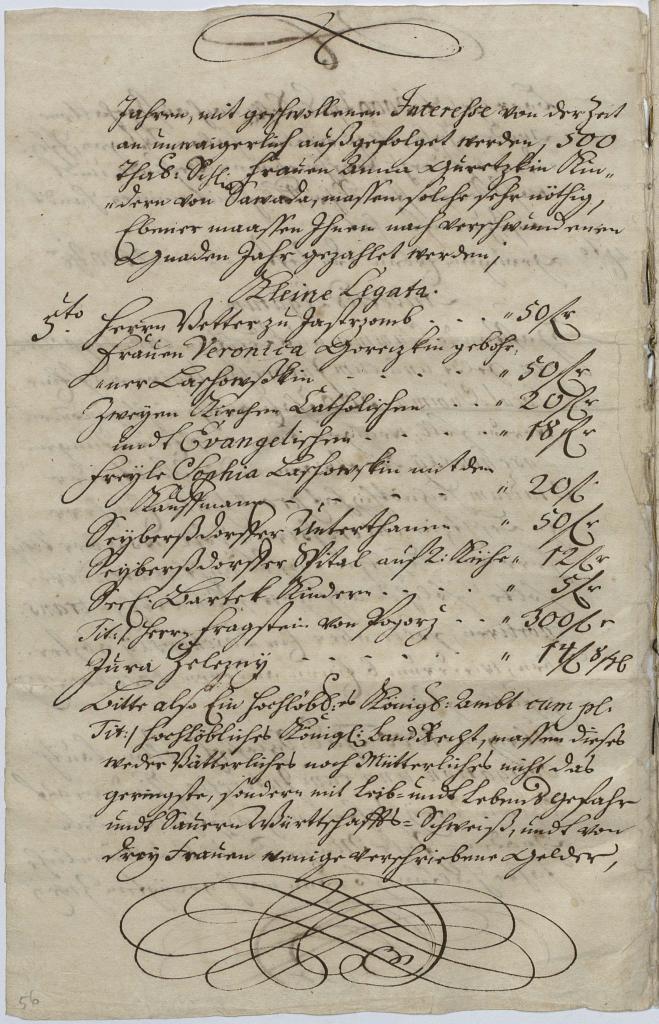 Jahren, mit geschwollenen Interesse von der Zeit
an unwaigerlich außgefolget werden, 500
Thal: Schl: Frauen Anna Guretzkin Kin„
„dern von Sawada, massen solche sehr nöthig,
Ebener maassen Ihnen nach verschwundenen
Gnaden Jahr gezahlet werden,
Kleine Legata.
5to Herrn Vetter zu Jastrzomb . . . " 50 fr
Frauen Veronica Goreczkin gebohr„
„ner Laschowßkin . . . . " 50 fr
Zweyen Kirchen Catholischen . . . " 20 fr
undt Evangelischen . . . . " 18 fr
Freyle Sophia Laschowskin mit den
Kauffmann . . . . " 20 f
Seyberßdorffer Unterthanen " 50 fr
Seyberßdorffer Spital auf 2: Kühe " 12 fr
Seel: Bartek Kindern . . . . " 5 fr
Tit: Herrn Fragstein von Pogorz . . " 300 fr
Jura Zelezny . . . . " 14 f 8
Bitte also Ein Hochlöbl:es Königl: Ambt cum pl:
Tit:/ hochlöbliches Königl: LandRecht, massen dieses
weder Vätterliches noch Mütterliches nicht das
geringste, sondern mit Leib- undt Lebens Gefahr
undt Sauern Württschaffts-Schweiß, undt von
drey Frauen wenige verschriebene Gelder,
56